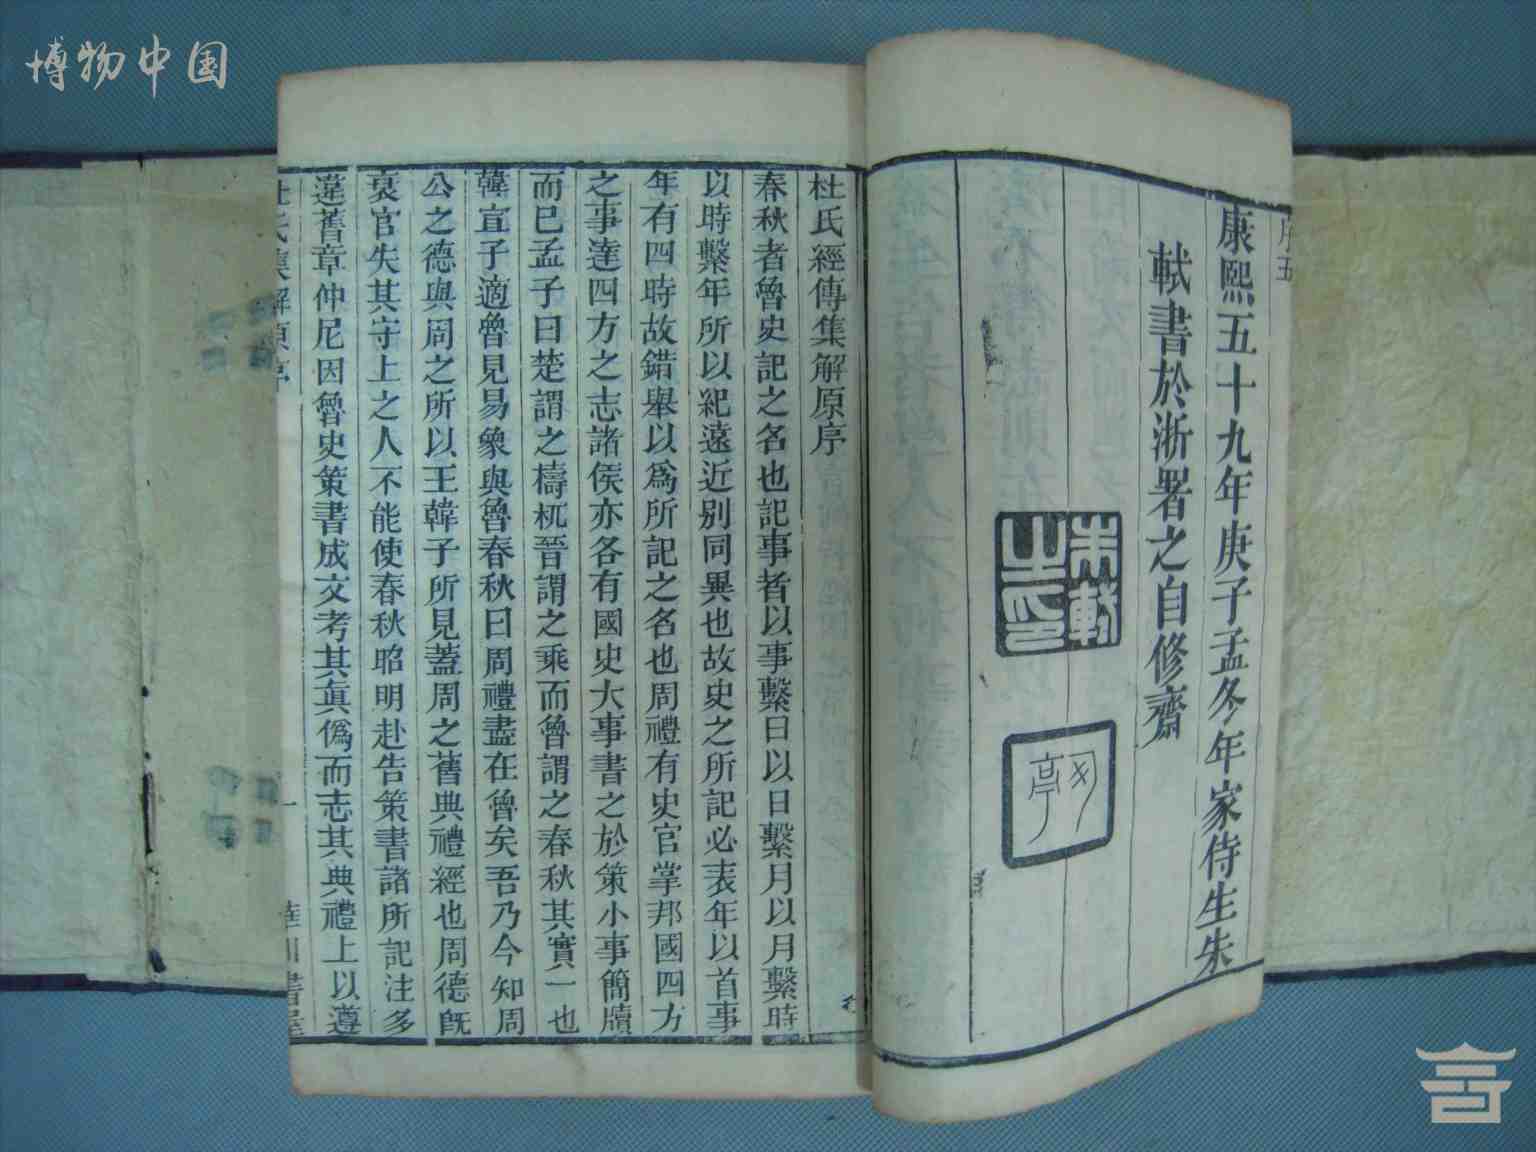 博物中国
序五
康熙五十九年庚子孟冬年家侍生朱
軾書於浙署之自修齋
朱軾
之印
杜氏經傳集解原序
春秋者魯史記之名也記事者以事繫日以日繫月以月繫時
以時繫年所以紀遠近別同異也故史之所記必表年以首事
年有四時故錯舉以爲所記之名也周禮有史官掌邦國四方
之事達四方之志諸侯亦各有國史大事書之於策小事簡牘
而已孟子曰楚謂之檮杌晉謂之乘而魯謂之春秋其實一也
韓宣子適魯見易象與魯春秋曰周禮盡在魯矣吾乃今知周
公之德與周之所以王韓子所見蓋周之舊典禮經也周德旣
衰官失其守上之人不能使春秋昭明赴告策書諸所記注多
違舊章仲尼因魯史策書成文考其眞僞而志其典禮上以遵
杜氏集解原序
一